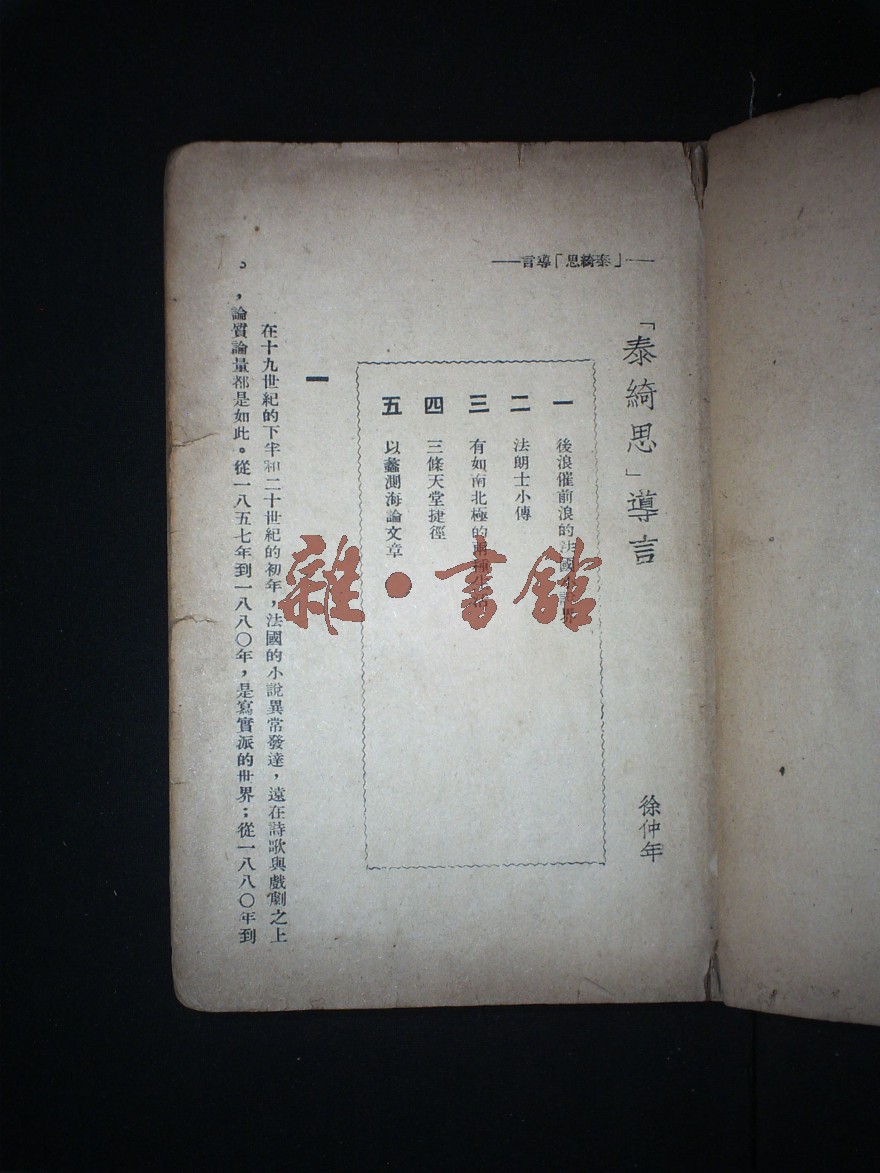 ——「泰綺思」導言——
「泰綺思」導言
徐仲年
一 後浪催前浪的法國小說界
二 法朗士小傳
三 有如南北極的兩種
四 三條天堂捷徑
五 以蠡測海論文章
一
在十九世紀的下半和二十世紀的初年，法國的小說異常發達，遠在詩歌與戲劇之上
，論質論量都是如此。從一八五七年到一八八〇年，是寫實派的世界；從一八八〇年到
雜·書館